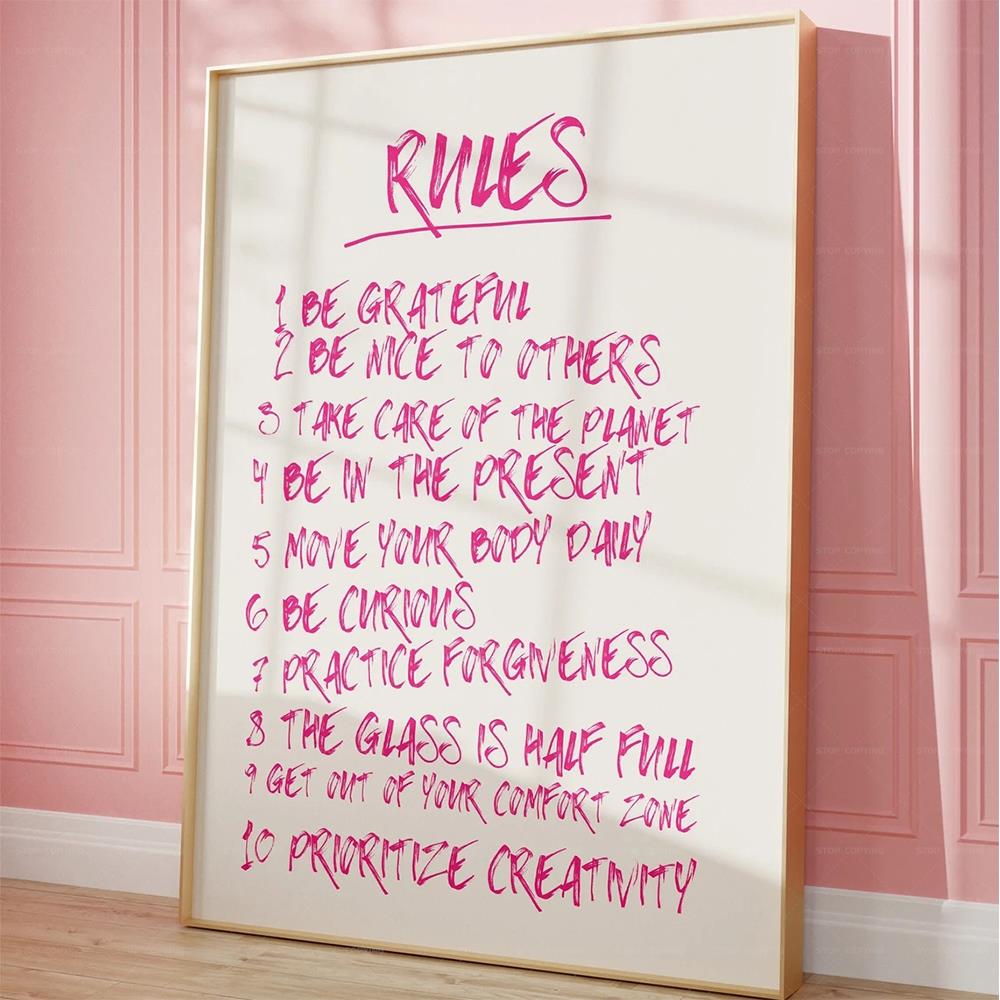 RULES
1 BE GRATEFUL
2 BE NICE TO OTHERS
3 TAKE CARE OF THE PLANET
4 BE IN THE PRESENT
5 MOVE YOUR BODY DAILY
6 BE CURIOUS
7 PRACTICE FORGIVENESS
8 THE GLASS IS HALF FULL
9 GET OUT OF YOUR COMFORT ZONE
10 PRIORITIZE CREATIVITY
STOP COPYING